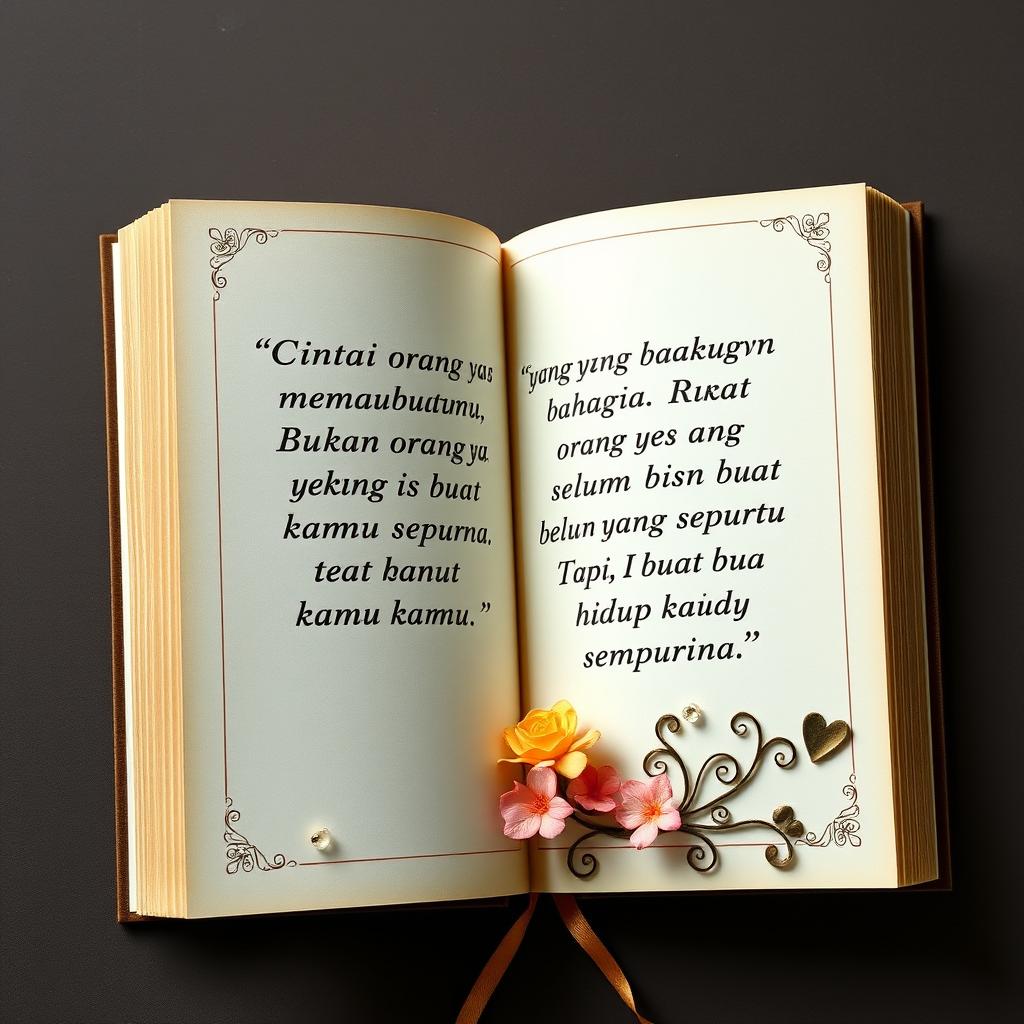 “Cintai orang yas
memaubudumu,
Bukan orang ya.
yeking is buat
kamu sepurna,
teat hanut
kamu kamu.”
“yang yıng baakugvn
bahagia. Rıkat
orang yes ang
selum bisn buat
belun yang sepurtu
Tapi, I buat bua
hidup kaidy
sempurina.”